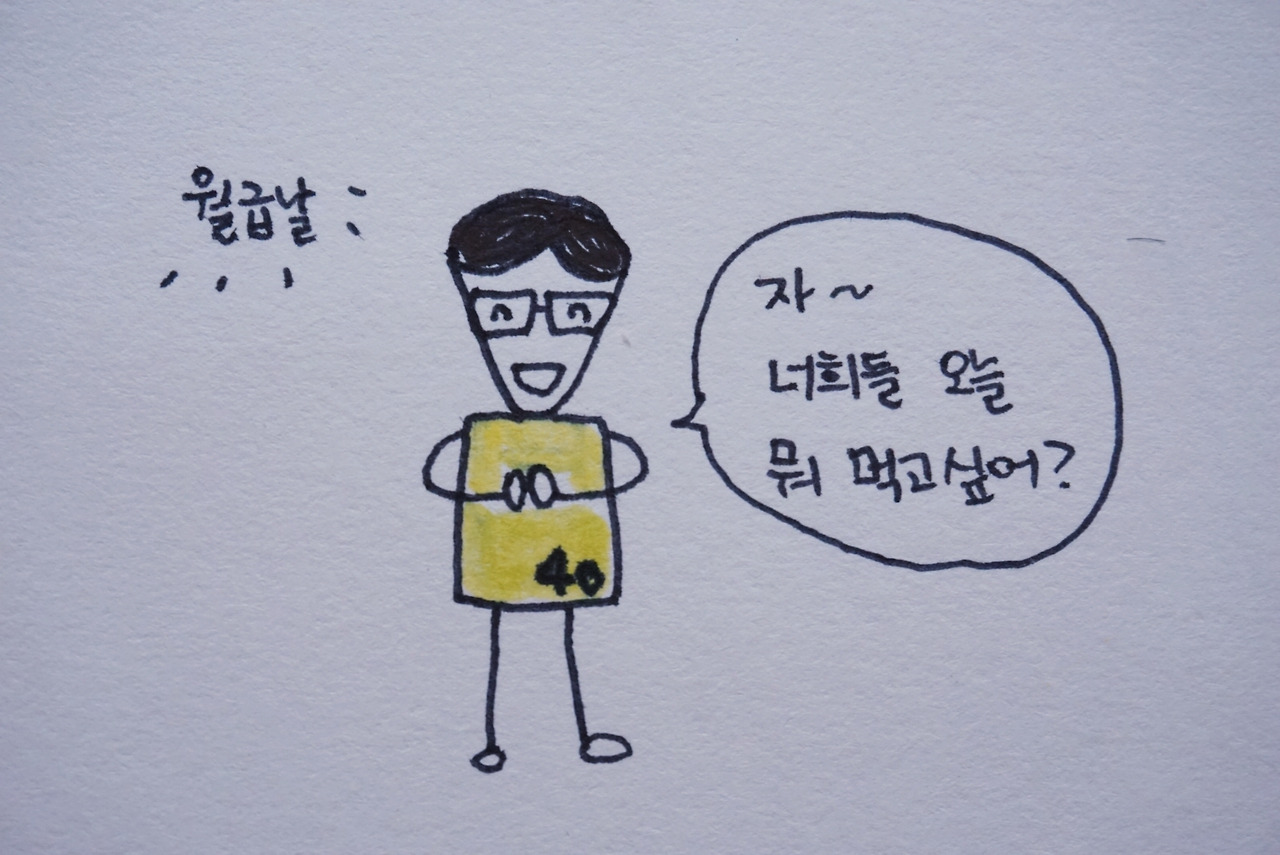 월급날
자~
너희들 오늘
뭐 먹고싶어?
40